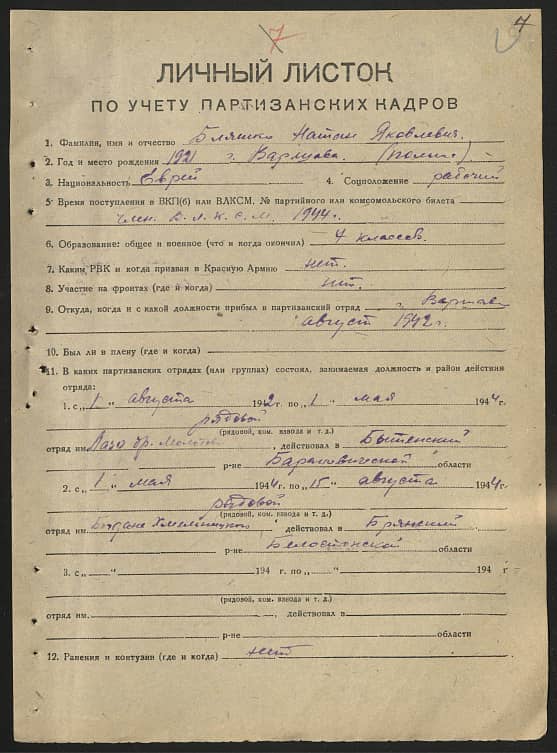 7
4
ЛИЧНЫЙ ЛИСТОК
ПО УЧЕТУ ПАРТИЗАНСКИХ КАДРОВ
1. Фамилия, имя и отчество Бляшко Натан Яковлевич.
2. Год и место рождения 1921 г. Варшава.
3. Национальность Еврей 4. Соцположение рабочий
5. Время поступления в ВКП(б) или ВЛКСМ, № партийного или комсомольского билета
член В.Л.К.С.М. 1944 г.
6. Образование: общее и военное (что и когда окончил) 4 классов.
7. Каким РВК и когда призван в Красную Армию нет.
8. Участие на фронтах (где и когда) нет.
9. Откуда, когда и с какой должности прибыл в партизанский отряд г. Варшавы
август 1942 г.
10. Был ли в плену (где и когда)
11. В каких партизанских отрядах (или группах) состоял, занимаемая должность и район действия
отряда:
1. с „1“ августа 1942 г. по „1“ мая 1944 г.
рядовой
(рядовой, ком. взвода и т. д.)
отряд им. Лазо бр. Молот, действовал в Бытенский
р-не Барановической области
2. с „1“ мая 1944 г. по „15“ августа 1944 г.
рядовой
(рядовой, ком. взвода и т. д.)
отряд им. Богдана Хмельницкого, действовал в Брянский
р-не Белостокской области
3. с „ “ 194 г. по „ “ 194 г
(рядовой, ком. взвода и т. д.)
отряд им. , действовал в
р-не области
12. Ранения и контузии (где и когда) нет